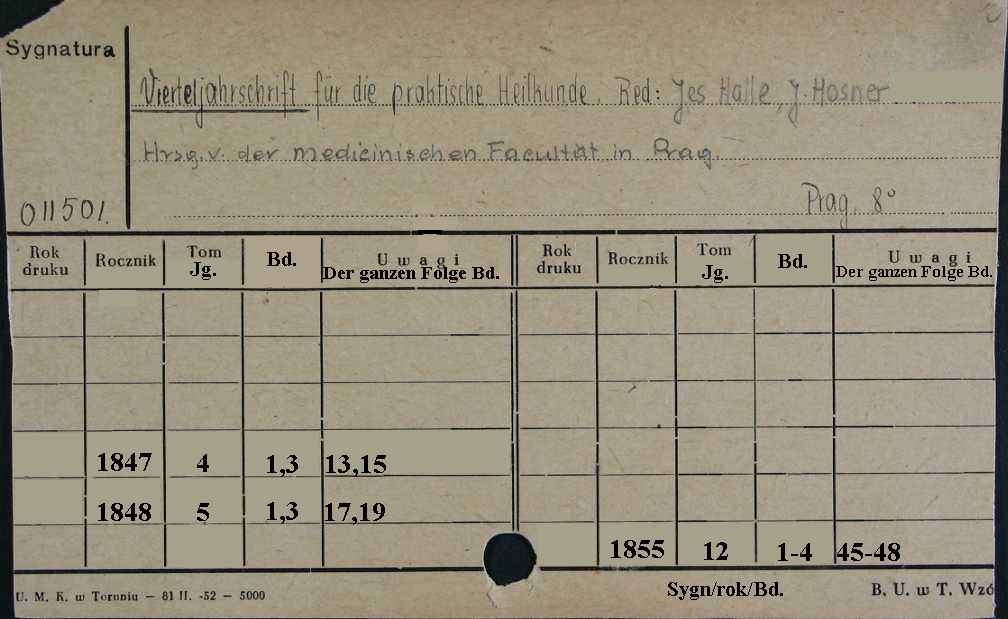 Sygnatura
Vierteljahrschrift für die praktische Heilkunde. Red: Jes Halle, J. Hosner
Hrsg. v. der medicinischen Facultät in Prag.
011501.
Prag. 8°
Rok druku Rocznik Tom Jg. Bd. Uwagi Der ganzen Folge Bd. Rok druku Rocznik Tom Jg. Bd. Uwagi Der ganzen Folge Bd.
1847 4 1,3 13,15
1848 5 1,3 17,19
1855 12 1-4 45-48
Sygn/rok/Bd.
U. M. K. w Toruniu — 81 II. -52 — 5000
B. U. w T. Wzó